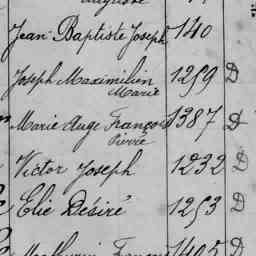 Auguste
Jean Baptiste Joseph 140
Joseph Maximilien 1259 D
Marie
Marie Ange François 1387 D
Pierre
Victor Joseph 1232 D
Elie Désiré 1253 D
Mathurin François 1405 D